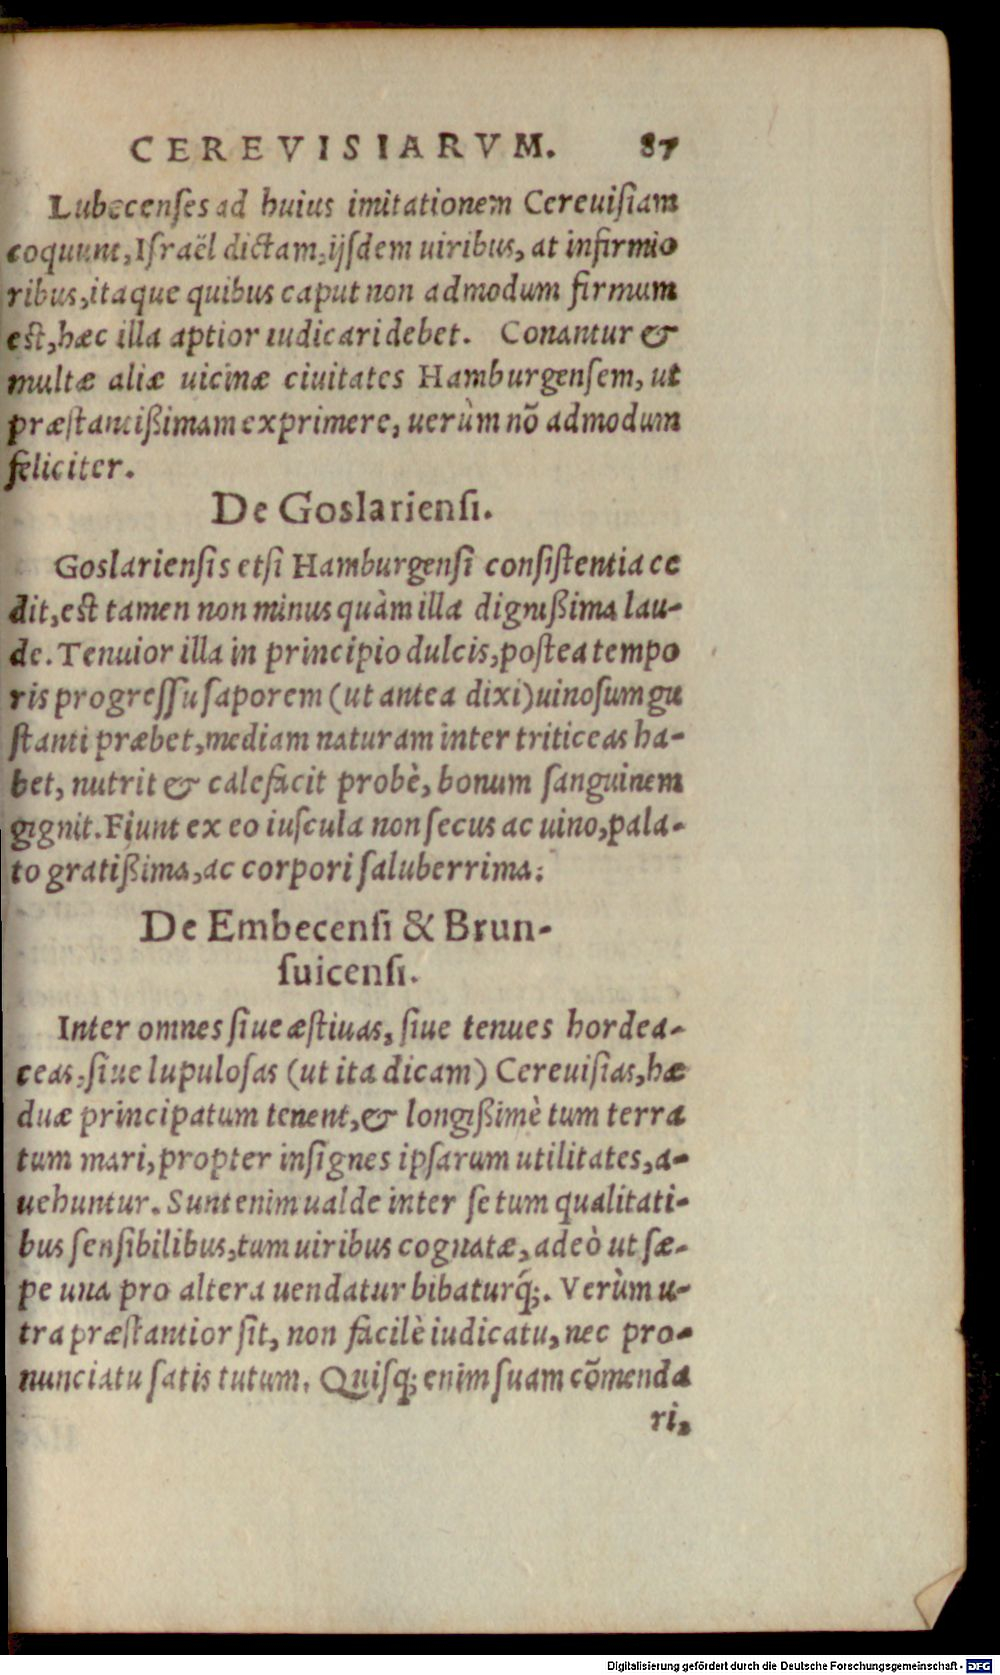 CEREVISIARVM. 87
Lubecenses ad huius imitationem Cereuiſiam
coquunt, Iſraël dictam, ijſdem uiribus, at infirmio
ribus, itaque quibus caput non admodum firmum
eſt, hæc illa aptior iudicari debet. Conantur &
multæ aliæ uicinæ ciuitates Hamburgenſem, ut
præſtantißimam exprimere, uerùm nõ admodum
feliciter.
De Goslarienſi.
Goslarienſis etſi Hamburgenſi conſiſtentia ce
dit, eſt tamen non minus quàm illa dignißima lau-
de. Tenuior illa in principio dulcis, poſtea tempo
ris progreſſu ſaporem (ut antea dixi) uinoſum gu
ſtanti præbet, mediam naturam inter triticeas ha-
bet, nutrit & calefacit probè, bonum ſanguinem
gignit. Fiunt ex eo iuſcula non ſecus ac uino, pala-
to gratißima, ac corpori ſaluberrima.
De Embecenſi & Brun-
ſuicenſi.
Inter omnes ſiue æſtiuas, ſiue tenues hordea-
ceas, ſiue lupuloſas (ut ita dicam) Cereuiſias, hæ
duæ principatum tenent, & longißimè tum terra
tum mari, propter inſignes ipſarum utilitates, a-
uehuntur. Sunt enim ualde inter ſe tum qualitati-
bus ſenſibilibus, tum uiribus cognatæ, adeò ut ſæ-
pe una pro altera uendatur bibaturq́;. Verùm u-
tra præſtantior ſit, non facilè iudicatu, nec pro-
nunciatu ſatis tutum. Quiſq; enim ſuam cõmenda
ri,
Digitalisierung gefördert durch die Deutsche Forschungsgemeinschaft - DFG